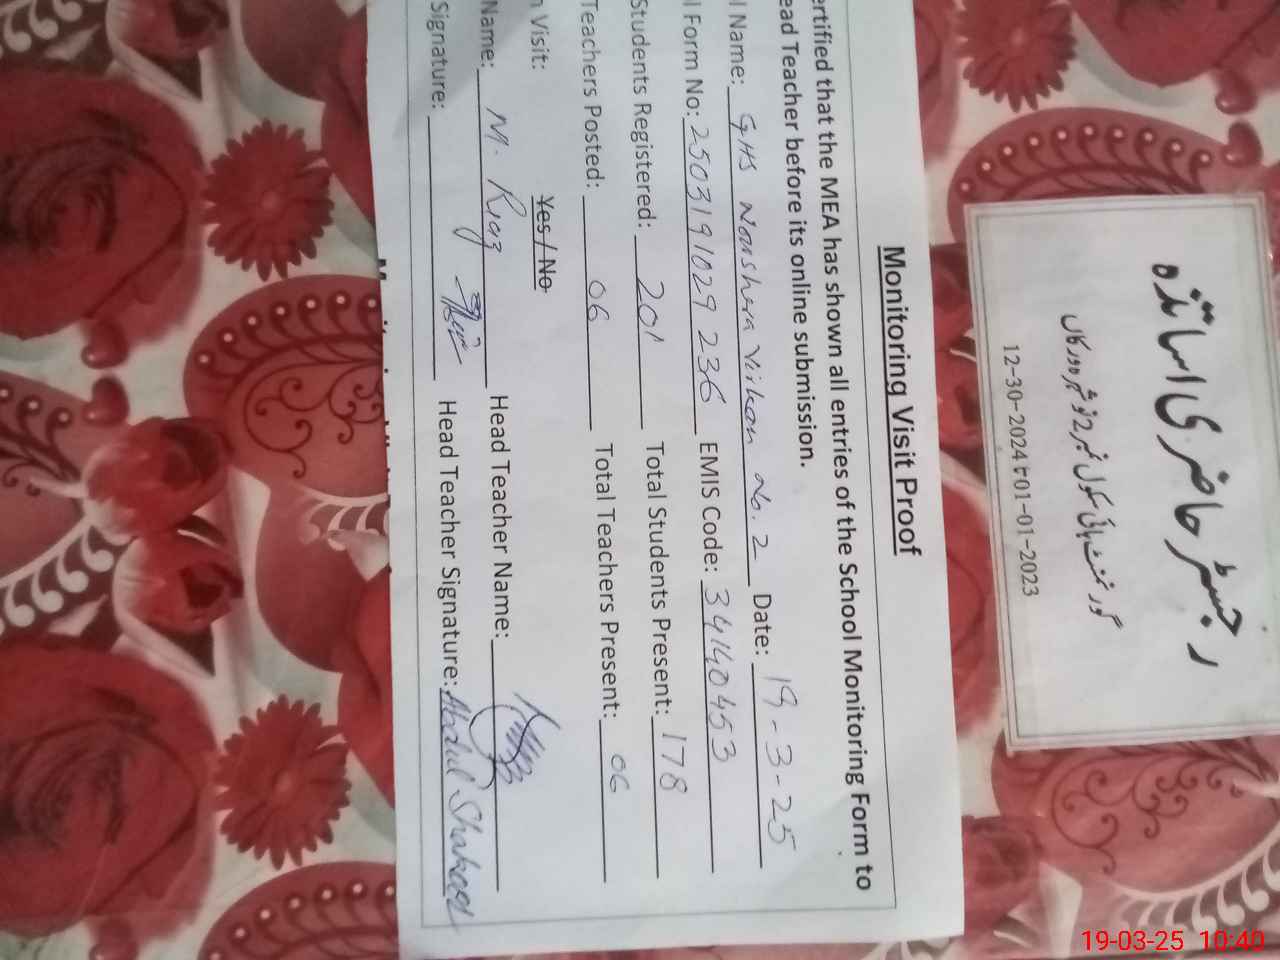 Monitoring Visit Proof
ertified that the MEA has shown all entries of the School Monitoring Form to
ead Teacher before its online submission.
l Name: GHS Noushera Virkan No. 2 Date: 19-3-25
l Form No: 2503191029236 EMIS Code: 34140453
Students Registered: 201 Total Students Present: 178
Teachers Posted: 06 Total Teachers Present: 06
n Visit: Yes / No
Name: M. Riaz Head Teacher Name:
Signature: Head Teacher Signature: Abdul Shakoor
رجسٹر حاضری اساتذہ
گورنمنٹ ہائی سکول نمبر 2 نوشہرہ ورکاں
12-30-2024 t 01-01-2023
19-03-25 10:40